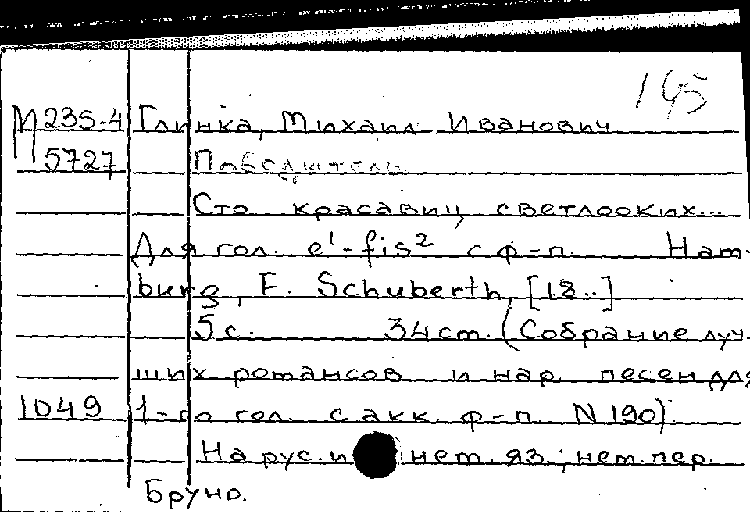 145
М 235-4 Глинка, Михаил Иванович
5727 Победитель
Сто красавиц светлооких...
Для гол. e'-fis² с ф-п. Ham-
burg, E. Schuberth, [18..]
5 с. 34 cm. (Собрание луч-
ших романсов и нар. песен для
1049 1-го гол. с акк. ф-п. N 190)
На рус. и нем. яз.; нем. пер.
Бруно.